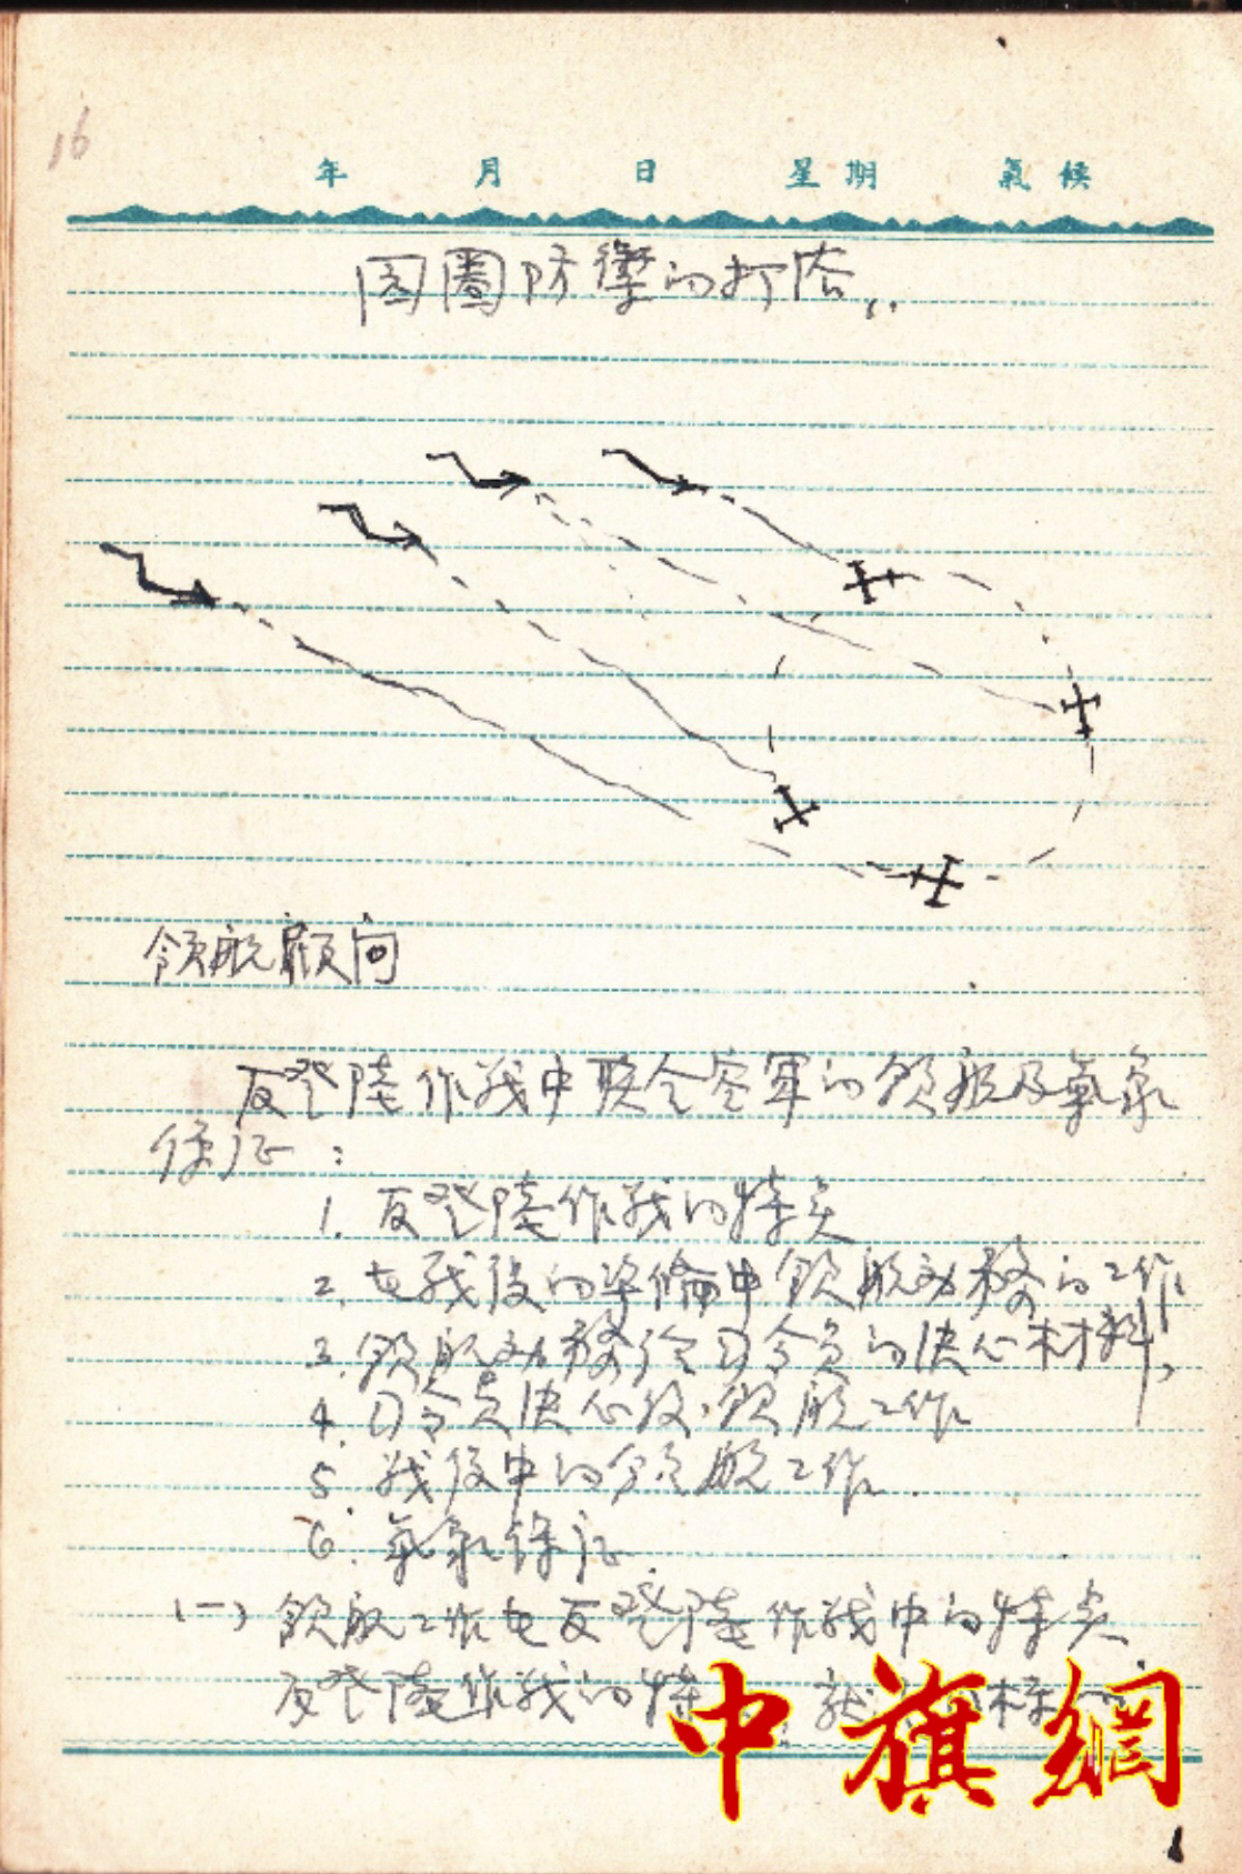 16
年 月 日 星期 氣候
圆圈防衛的打法..
领航顾问
反登陸作战中联合空軍的領航及氣象
保证：
1. 反登陸作战的特点
2. 在战役的準備中領航勤務的工作
3. 領航勤務给司令员的决心材料,
4. 司令员决心後,領航工作
5. 战役中的領航工作.
6. 氣象保证.
(一) 領航工作在反登陸作战中的特点
反登陸作战的特 就 目標
中旗網